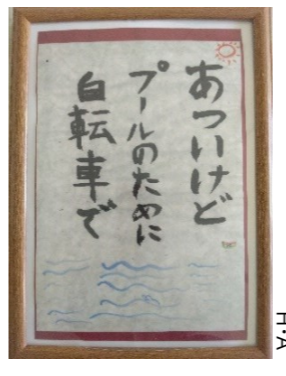 あついけど
プールのために
自転車で
H·A